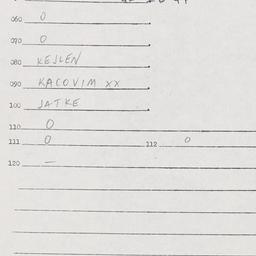 060 0
070 0
080 KEJLEN
090 KACOVIM XX
100 JATKE
110 0
111 0 112 0
120 —